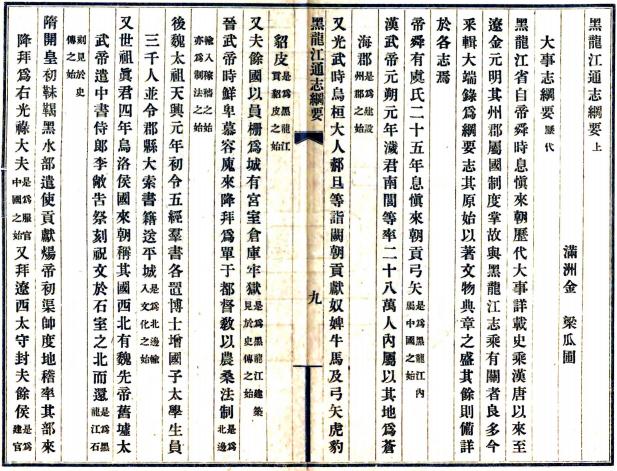 黑龍江通志綱要 上
滿洲金 梁瓜圃
大事志綱要 歷代
黑龍江省自帝舜時息愼來朝歷代大事詳載史乘漢唐以來至
遼金元明其州郡屬國制度掌故與黑龍江志乘有關者良多今
釆輯大端錄爲綱要志其原始以著文物典章之盛其餘則備詳
於各志焉
帝舜有虞氏二十五年息愼來朝貢弓矢 是爲黑龍江內屬中國之始
漢武帝元朔元年濊君南閭等率二十八萬人內屬以其地爲蒼
海郡 是爲建設州郡之始
又光武時烏桓大人郝旦等詣闕朝貢獻奴婢牛馬及弓矢虎豹
黑龍江通志綱要 九
貂皮 是爲黑龍江貢貂皮之始
又夫餘國以員柵爲城有宮室倉庫牢獄 是爲黑龍江建築見於史傳之始
晉武帝時鮮卑慕容廆來降拜爲單于都督敎以農桑法制 是爲北邊
輸入稼穡之始亦爲制法之始
後魏太祖天興元年初令五經羣書各置博士增國子太學生員
三千人並令郡縣大索書籍送平城 是爲北邊輸入文化之始
又世祖眞君四年烏洛侯國來朝稱其國西北有魏先帝舊墟太
武帝遣中書侍郎李敞告祭刻祝文於石室之北而還 是爲黑龍江石
刻見於史傳之始
隋開皇初靺鞨黑水部遣使貢獻煬帝初渠帥度地稽率其部來
降拜爲右光祿大夫 是爲服官中國之始 又拜遼西太守封夫餘侯 是爲建官